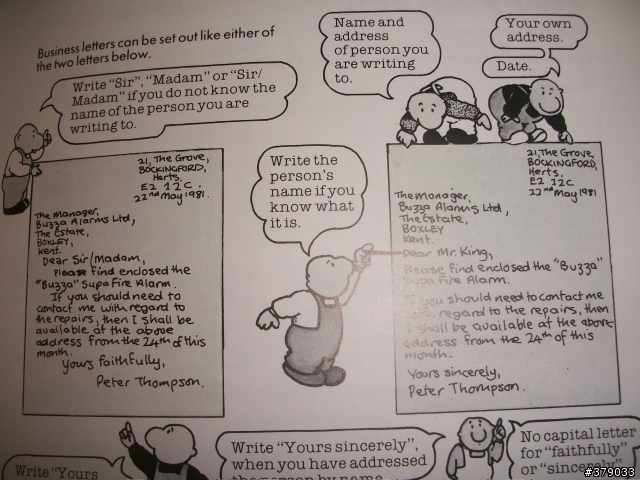 Business letters can be set out like either of
the two letters below.
Write "Sir", "Madam" or "Sir/
Madam" if you do not know the
name of the person you are
writing to.
Name and
address
of person you
are writing
to.
Your own
address.
Date.
21, The Grove,
BOCKINGFORD,
Herts.
E2 12C.
22nd May 1981.
The Manager,
Buzza Alarms Ltd,
The Estate,
BOXLEY,
Kent.
Dear Sir/Madam,
Please find enclosed the
"Buzza" Supa Fire Alarm.
If you should need to
contact me with regard to
the repairs, then I shall be
available at the above
address from the 24th of this
month.
Yours faithfully,
Peter Thompson.
Write the
person's
name if you
know what
it is.
21, The Grove,
BOCKINGFORD,
Herts.
E2 12C
22nd May 1981
The Manager,
Buzza Alarms Ltd,
The Estate,
BOXLEY
Kent.
Dear Mr. King,
Please find enclosed the "Buzza"
Supa Fire Alarm.
If you should need to contact me
with regard to the repairs, then
I shall be available at the above
address from the 24th of this
month.
Yours sincerely,
Peter Thompson.
Write "Yours
Write "Yours sincerely",
when you have addressed
the person by name
No capital letter
for "faithfully"
or "sincerely"
#379033